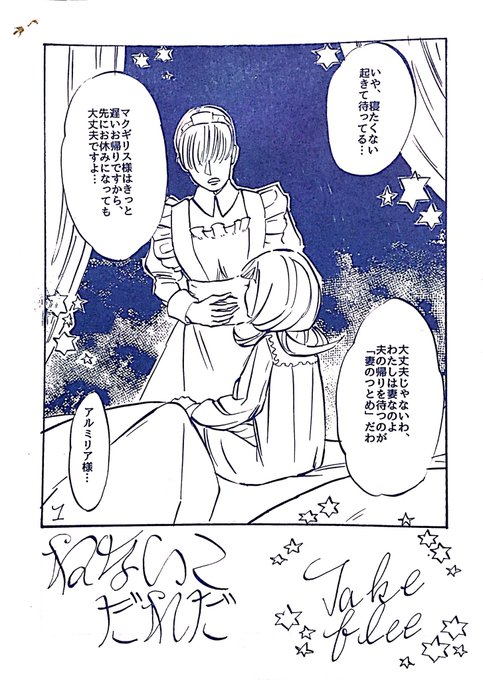 いや、寝たくない
起きて待ってる…
マクギリス様はきっと
遅いお帰りですから、
先にお休みになっても
大丈夫ですよ…
大丈夫じゃないわ、
わたしは妻なのよ
夫の帰りを待つのが
「妻のつとめ」だわ
アルミリア様…
1
ねないこ
だれだ
Take
free